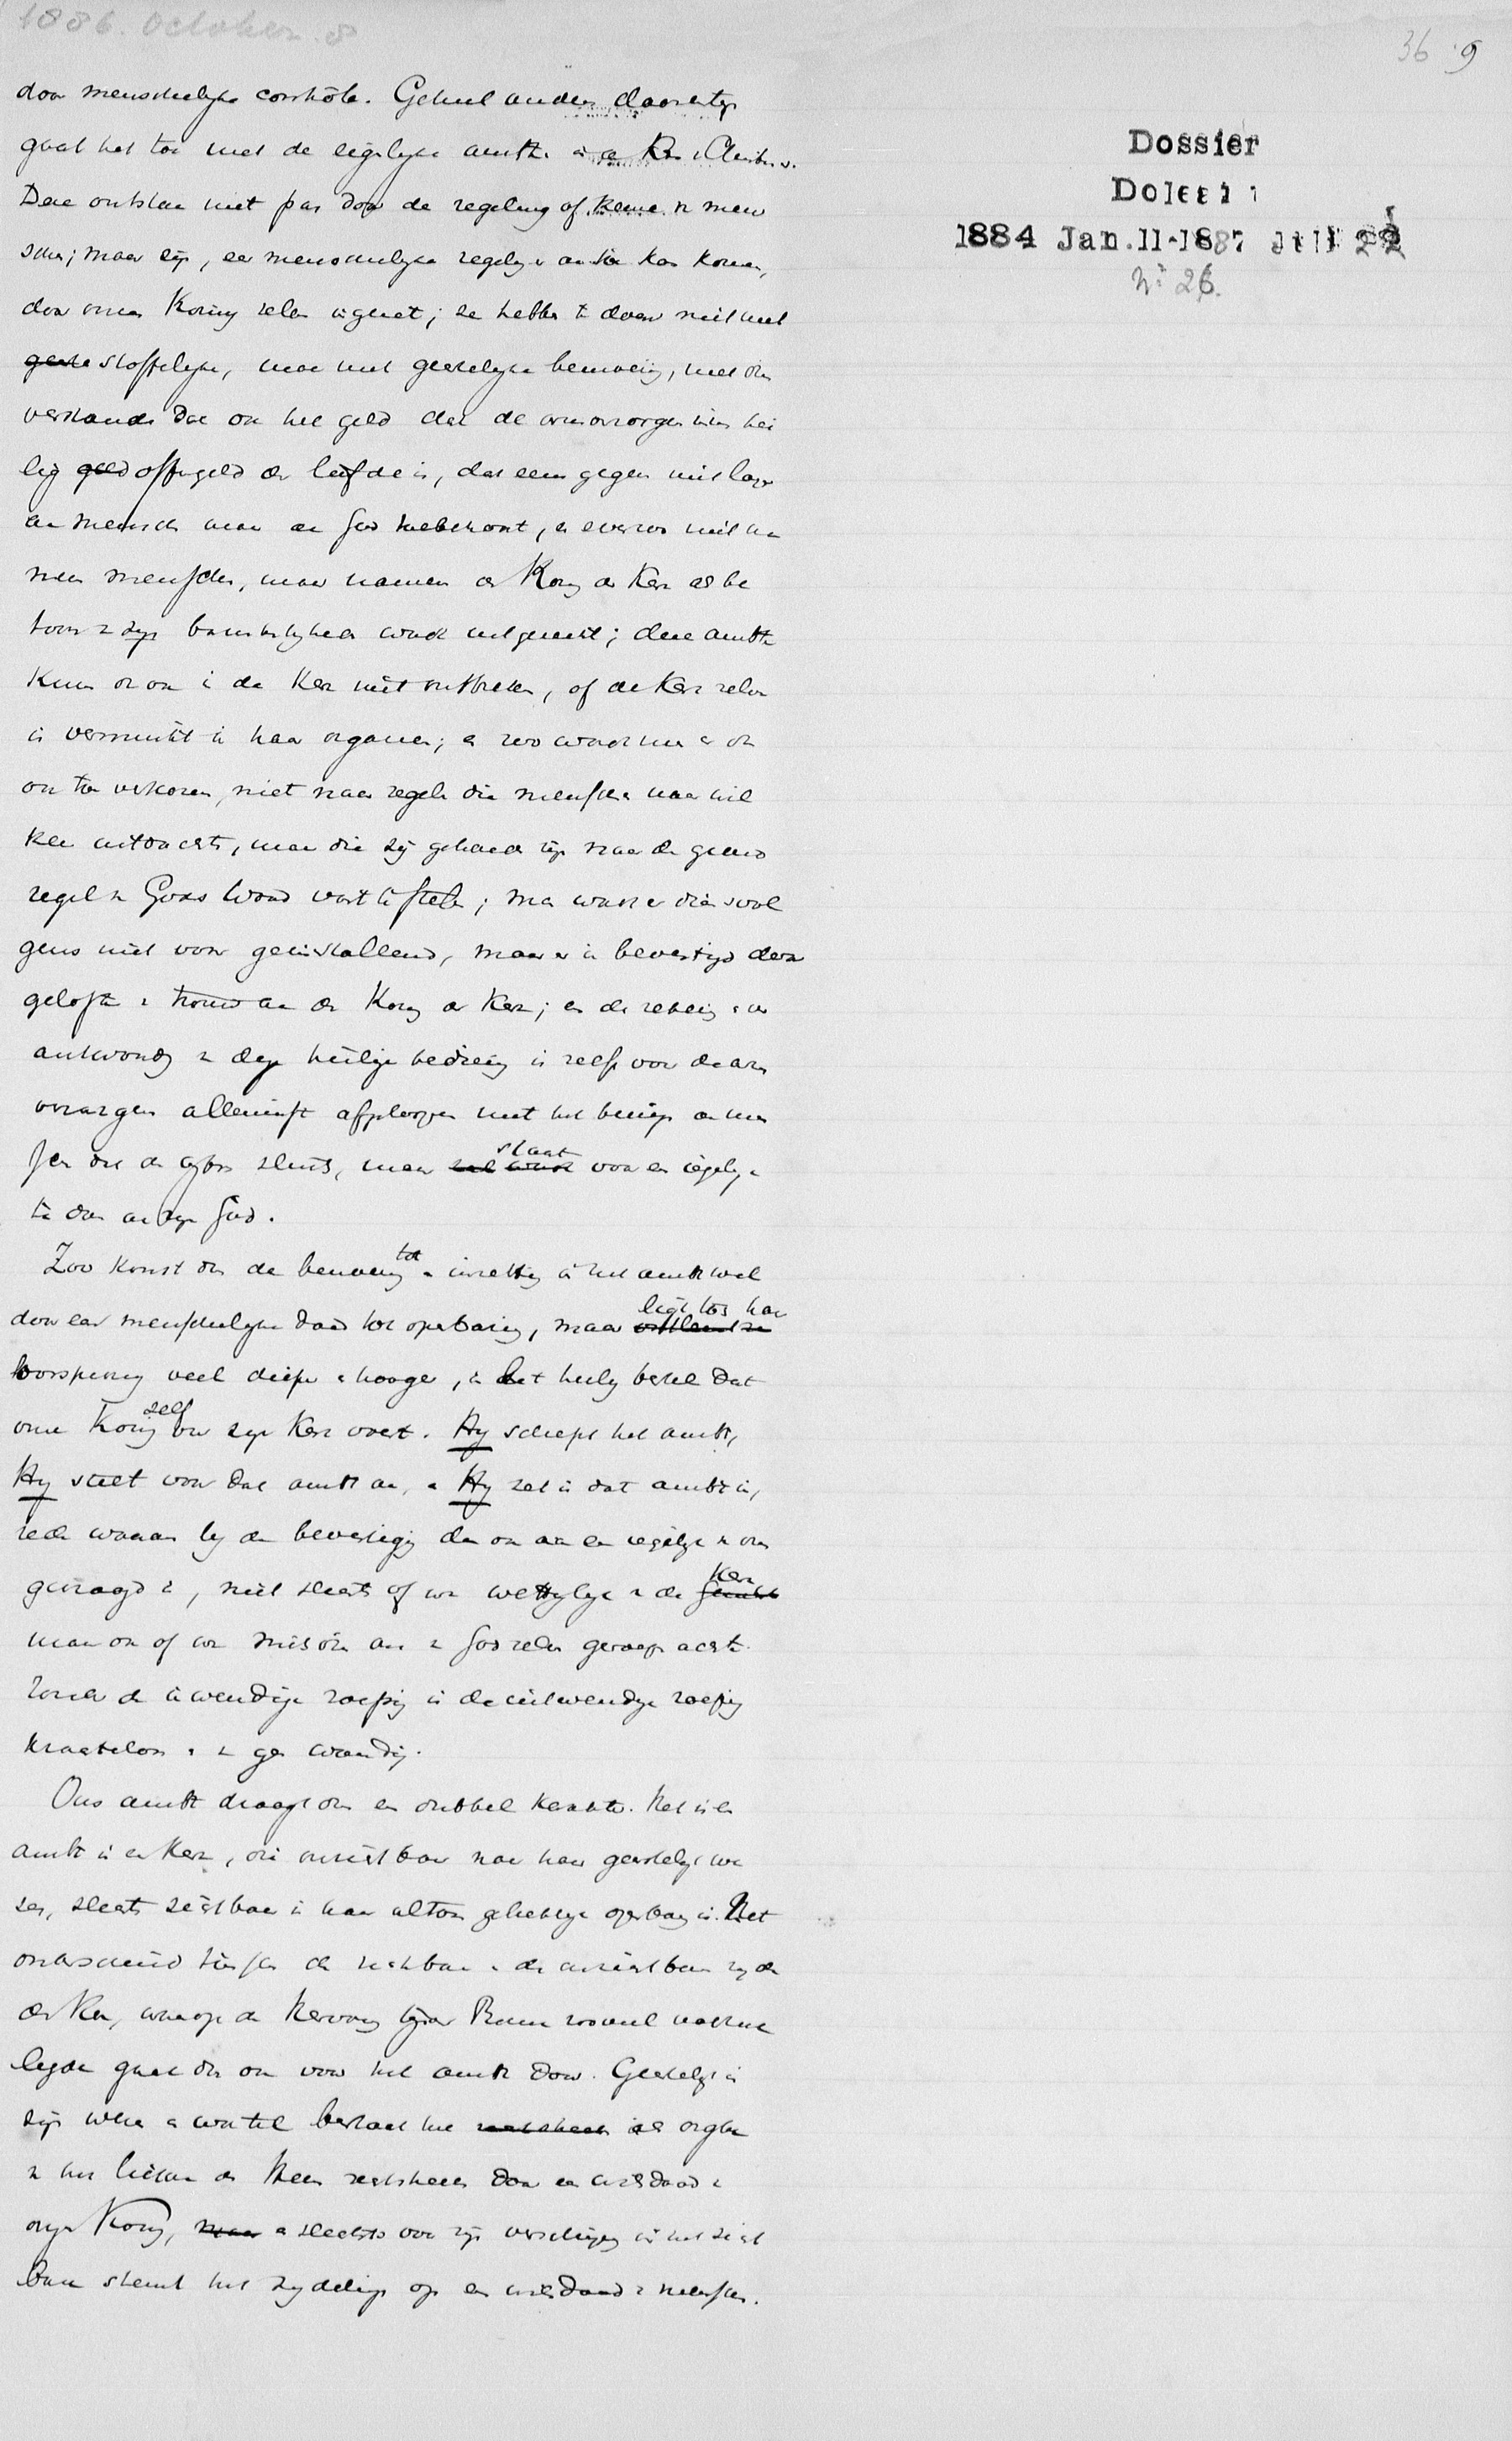 1886. October. 8
36 9
Dossier
1884 Jan. 11-1887
No 26.
door menschelyke controle. Geheel anders daarentegen
gaat het toe met de eigelyke ambten
Deze ontstaan niet pas door de regeling of keuze v. men
schen; maar zijn, eer menschelyke regeling er aan toe kan komen,
door onzen Koning zelven ingezet; ze hebben te doen niet met
stoffelyke, maar met geestelyke bemoeiing, met dien
verstande dat ook het geld dat de armverzorgers innen hei
lig offergeld der liefde is, dat eens gegeven niet langer
aan menschen maar aan God toebehoort, en evenzoo niet na
mens menschen, maar namens den Koning der Kerk als be
toon v zijn barmhartigheid wordt uitgereikt; deze ambten
kunnen ook in de Kerk niet ontbreken, of de Kerk zelve
is verminkt in haar organen; en zoo wordt men er dan
ook toe verkoren, niet naar regels die menschen naar wille
keur uitdachten, maar die zij gehouden zijn naar den grond
regel v Gods Woord vast te stellen; men wordt er dien vol
gens niet voor geïnstalleerd, maar er in bevestigd door
gelofte v trouw aan den Koning der Kerk; en de rekening en ver
antwoording v deze heilige bediening is zelfs voor de arm
verzorgers allerminst afgeloopen met het bewijs aan men
schen dat de cijfers sluiten, maar staat voor een iegelijk
te doen aan zijn God.
Zoo komt dus de benoeming tot en inzetting in het ambt wel
door een menschelyke daad tot openbaring, maar ligt toch haar
oorsprong veel dieper en hooger, in het heilig bestel dat
onze Koning zelf over zijn Kerk voert. Hy schept het ambt,
Hy stelt voor dat ambt aan, en Hy zet in dat ambt in,
reden waarom by de bevestiging dan ook aan een iegelijk v ons
gevraagd is, niet slechts of we wettiglijk v de Kerk
maar ook of we mitsdien ook v God zelven geroepen achtten.
Zonder de inwendige roeping is de uitwendige roeping
krachteloos en v geen waardij.
Ons ambt draagt dus een dubbel karakter. Het is een
ambt in een Kerk, die onzichtbaar naar haar geestelijk we
zen, slechts zichtbaar in haar altoos gebrekkige openbaring is. Het
onderscheid tusschen de zichtbare en de onzichtbare zyde
der Kerk, waarop de Hervormers tegenover Rome zooveel nadruk
legden gaat dus ook voor het ambt door. Geestelijk in
zijn wezen en wortel bestaat het als orgaan
v het lichaam des Heeren rechtstreeks door een wilsdaad v
onzen Koning, en slechts voor zijn verschijning in het zicht
bare steunt het zydelings op een wilsdaad v menschen.